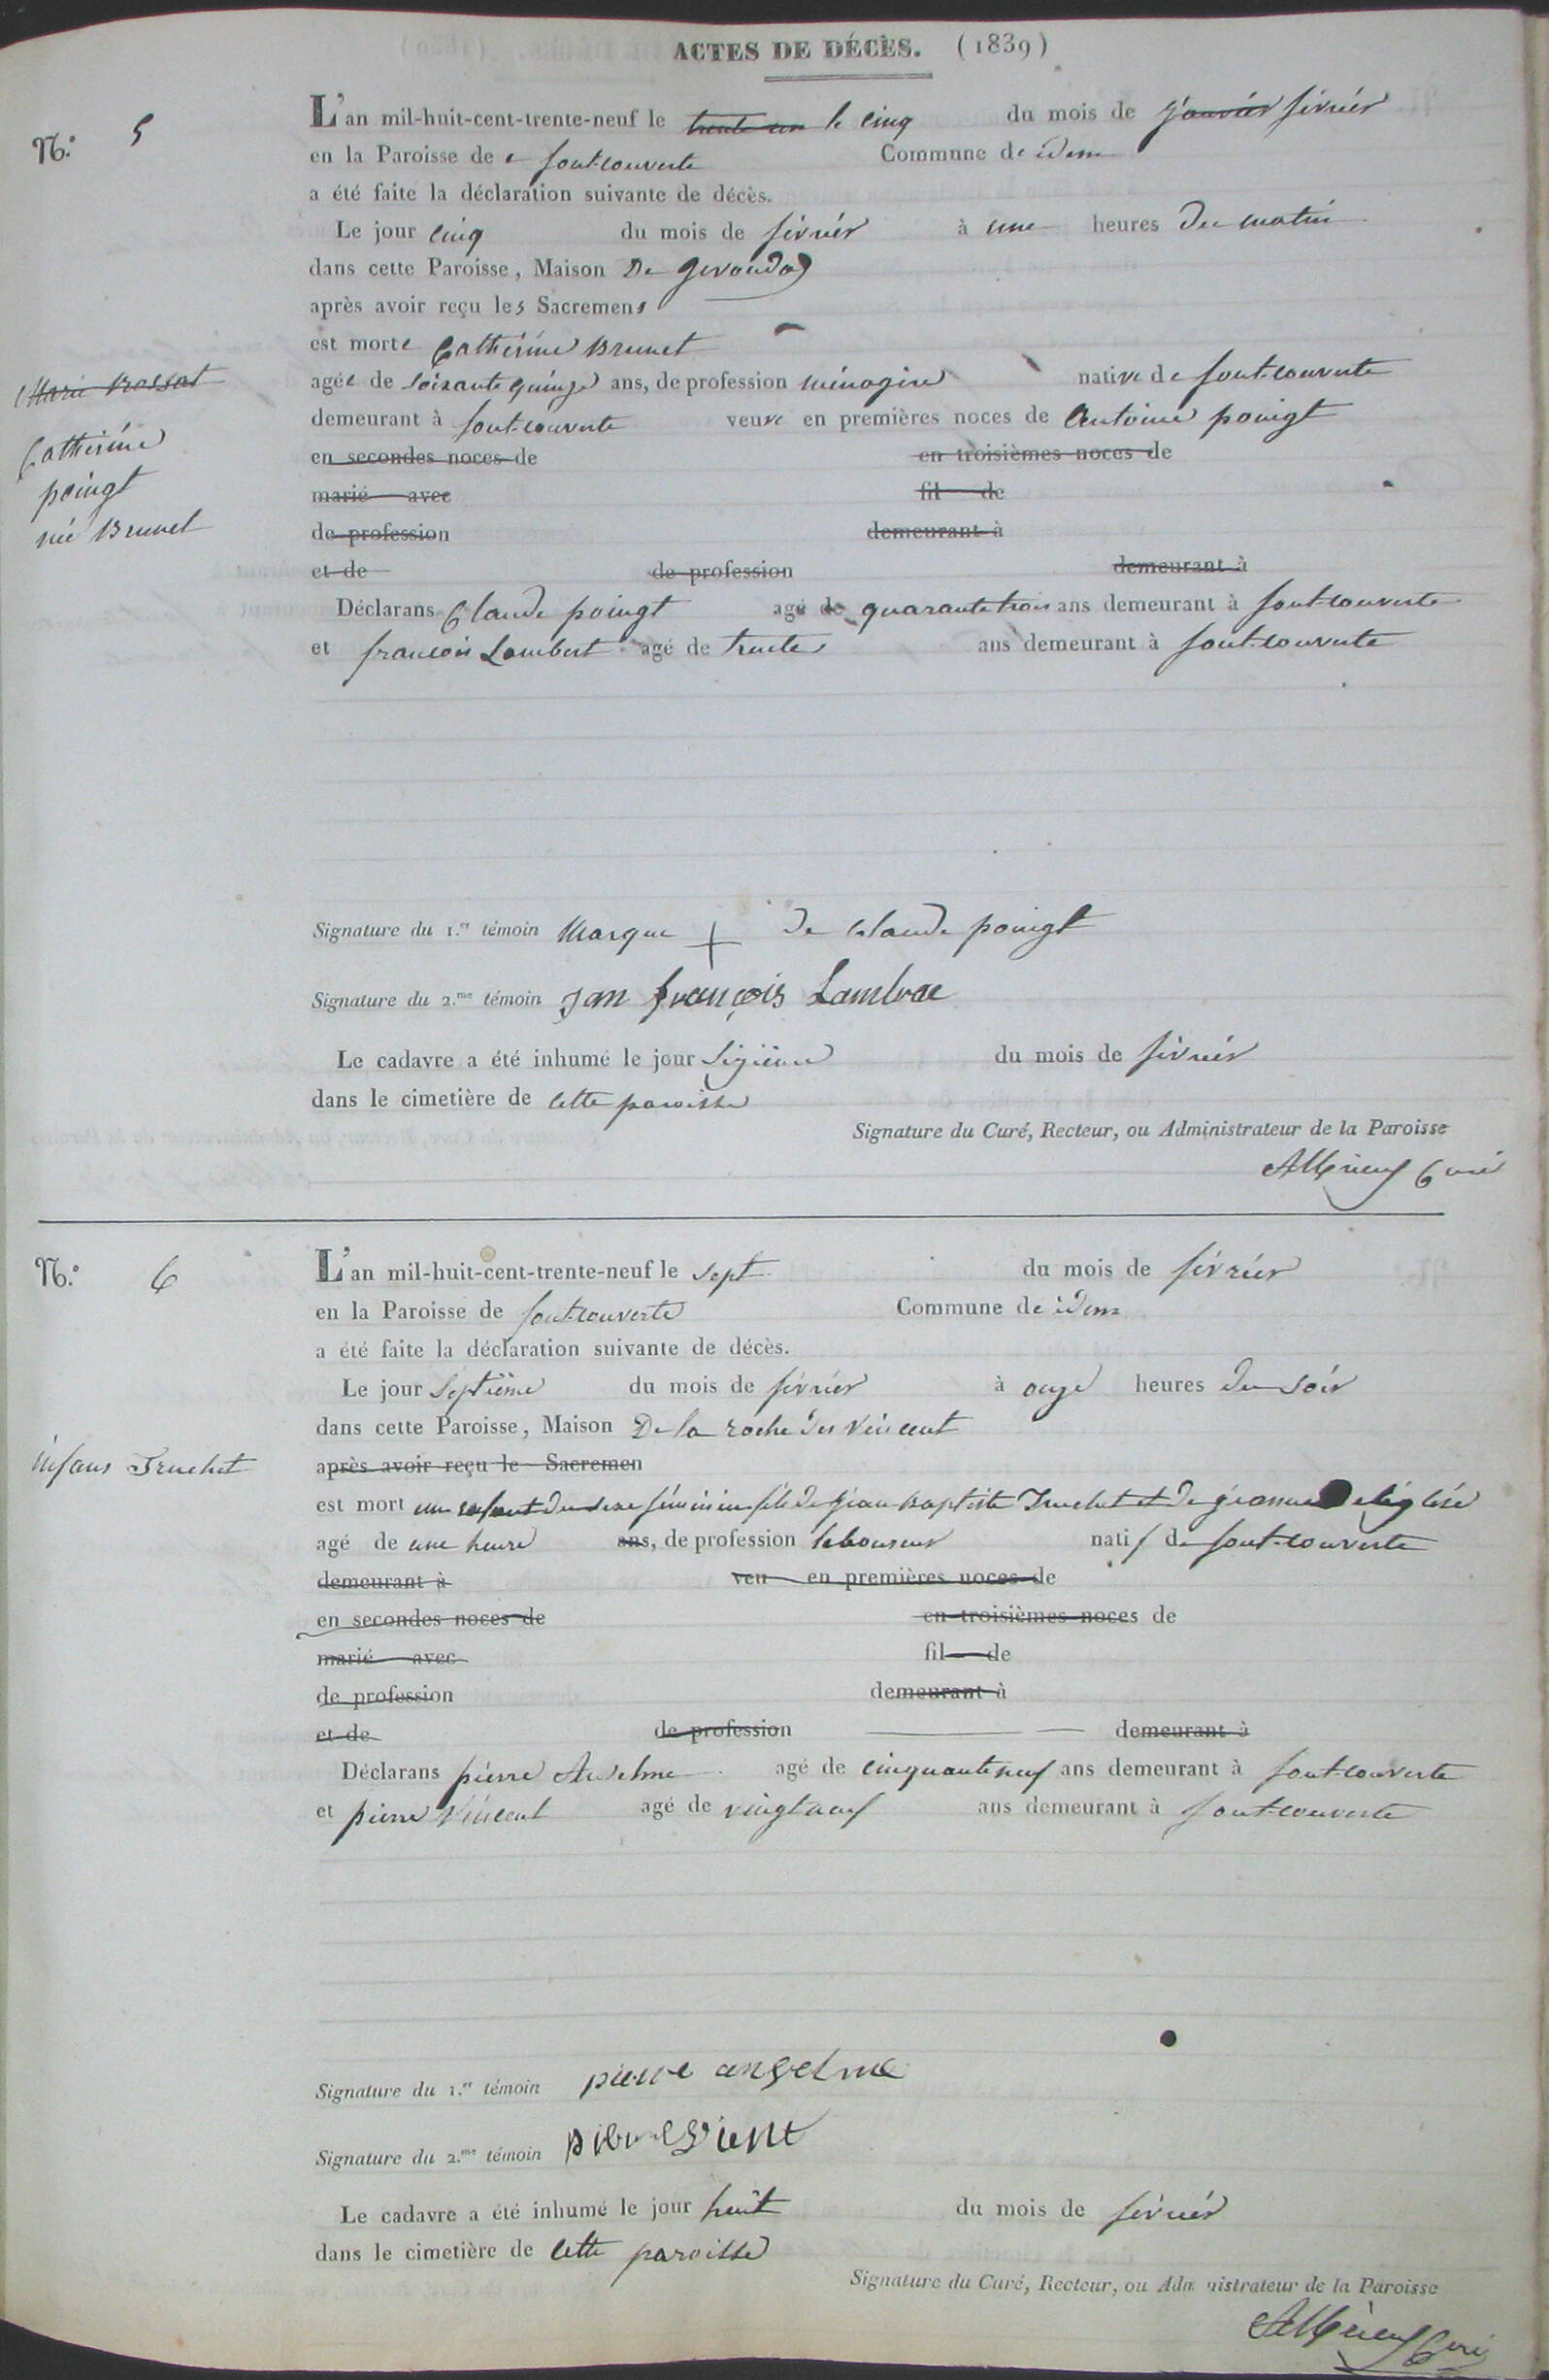 ACTES DE DÉCÈS. (1839)
N.° 5
L'an mil-huit-cent-trente-neuf le trente un le cinq du mois de janvier février
en la Paroisse de fontcouverte Commune de idem
a été faite la déclaration suivante de décès.
Le jour cinq du mois de février à une heures du matin
dans cette Paroisse, Maison De
après avoir reçu les Sacremens
est morte Catherine Brunet
Marie
agée de soixante quinze ans, de profession ménagère native de font-couverte
demeurant à font-couverte veuve en premières noces de Antoine poingt
Catherine
en secondes noces de en troisièmes noces de
poingt
marié avec fil de
née Brunet
de profession demeurant à
et de de profession demeurant à
Déclarans Claude poingt agé de quarante trois ans demeurant à font-couverte
et françois Lambert agé de trente ans demeurant à font-couverte
Signature du 1.er témoin Marque + de Claude poingt
Signature du 2.me témoin Jan françois Lambrae
Le cadavre a été inhumé le jour sizième du mois de février
dans le cimetière de cette paroisse
Signature du Curé, Recteur, ou Administrateur de la Paroisse
Curé
N.° 6
L'an mil-huit-cent-trente-neuf le sept du mois de février
en la Paroisse de font-couverte Commune de idem
a été faite la déclaration suivante de décès.
Le jour septième du mois de février à onze heures du soir
dans cette Paroisse, Maison De la roche des Vincent
infans Truchet
après avoir reçu le Sacremen
est mort une enfant du sexe féminin file de jean baptiste Truchet et de jeanne Deléglise
agé de une heure ans, de profession laboureur natif de font-couverte
demeurant à veu en premières noces de
en secondes noces de en troisièmes noces de
marié avec fil de
de profession demeurant à
et de de profession demeurant à
Déclarans pierre Anselme agé de cinquante neuf ans demeurant à font-couverte
et pierre Vincent agé de vingt neuf ans demeurant à font-couverte
Signature du 1.er témoin pierre anselme
Signature du 2.me témoin
Le cadavre a été inhumé le jour huit du mois de février
dans le cimetière de cette paroisse
Signature du Curé, Recteur, ou Administrateur de la Paroisse
Curé